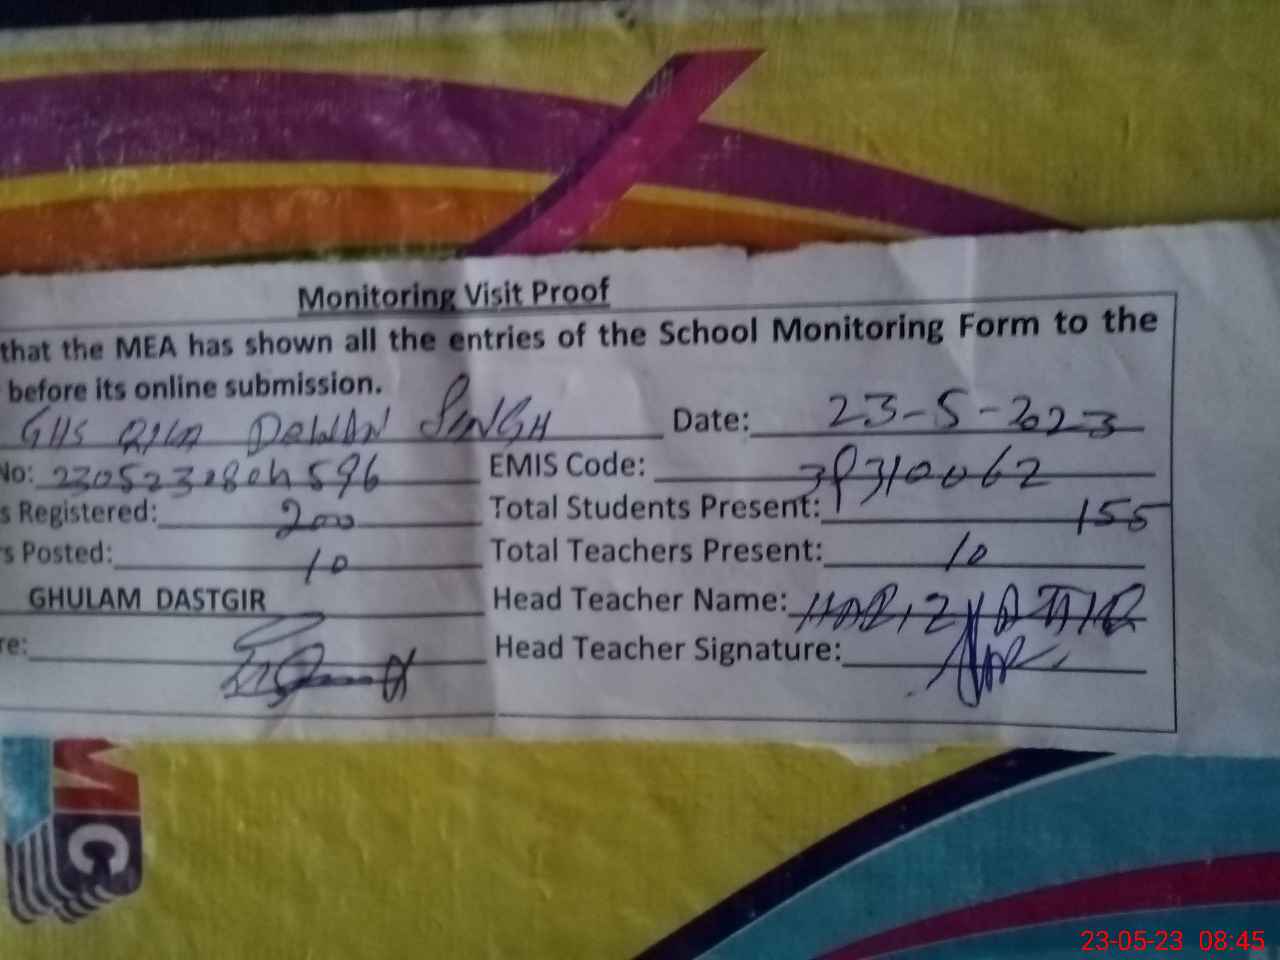 Monitoring Visit Proof
that the MEA has shown all the entries of the School Monitoring Form to the
before its online submission.
GHS QILA DEWAN SINGH Date: 23-5-2023
No: 230523080h596 EMIS Code: 39310062
s Registered: 200 Total Students Present: 155
rs Posted: 10 Total Teachers Present: 10
GHULAM DASTGIR Head Teacher Name:
re: Head Teacher Signature:
MC
23-05-23 08:45